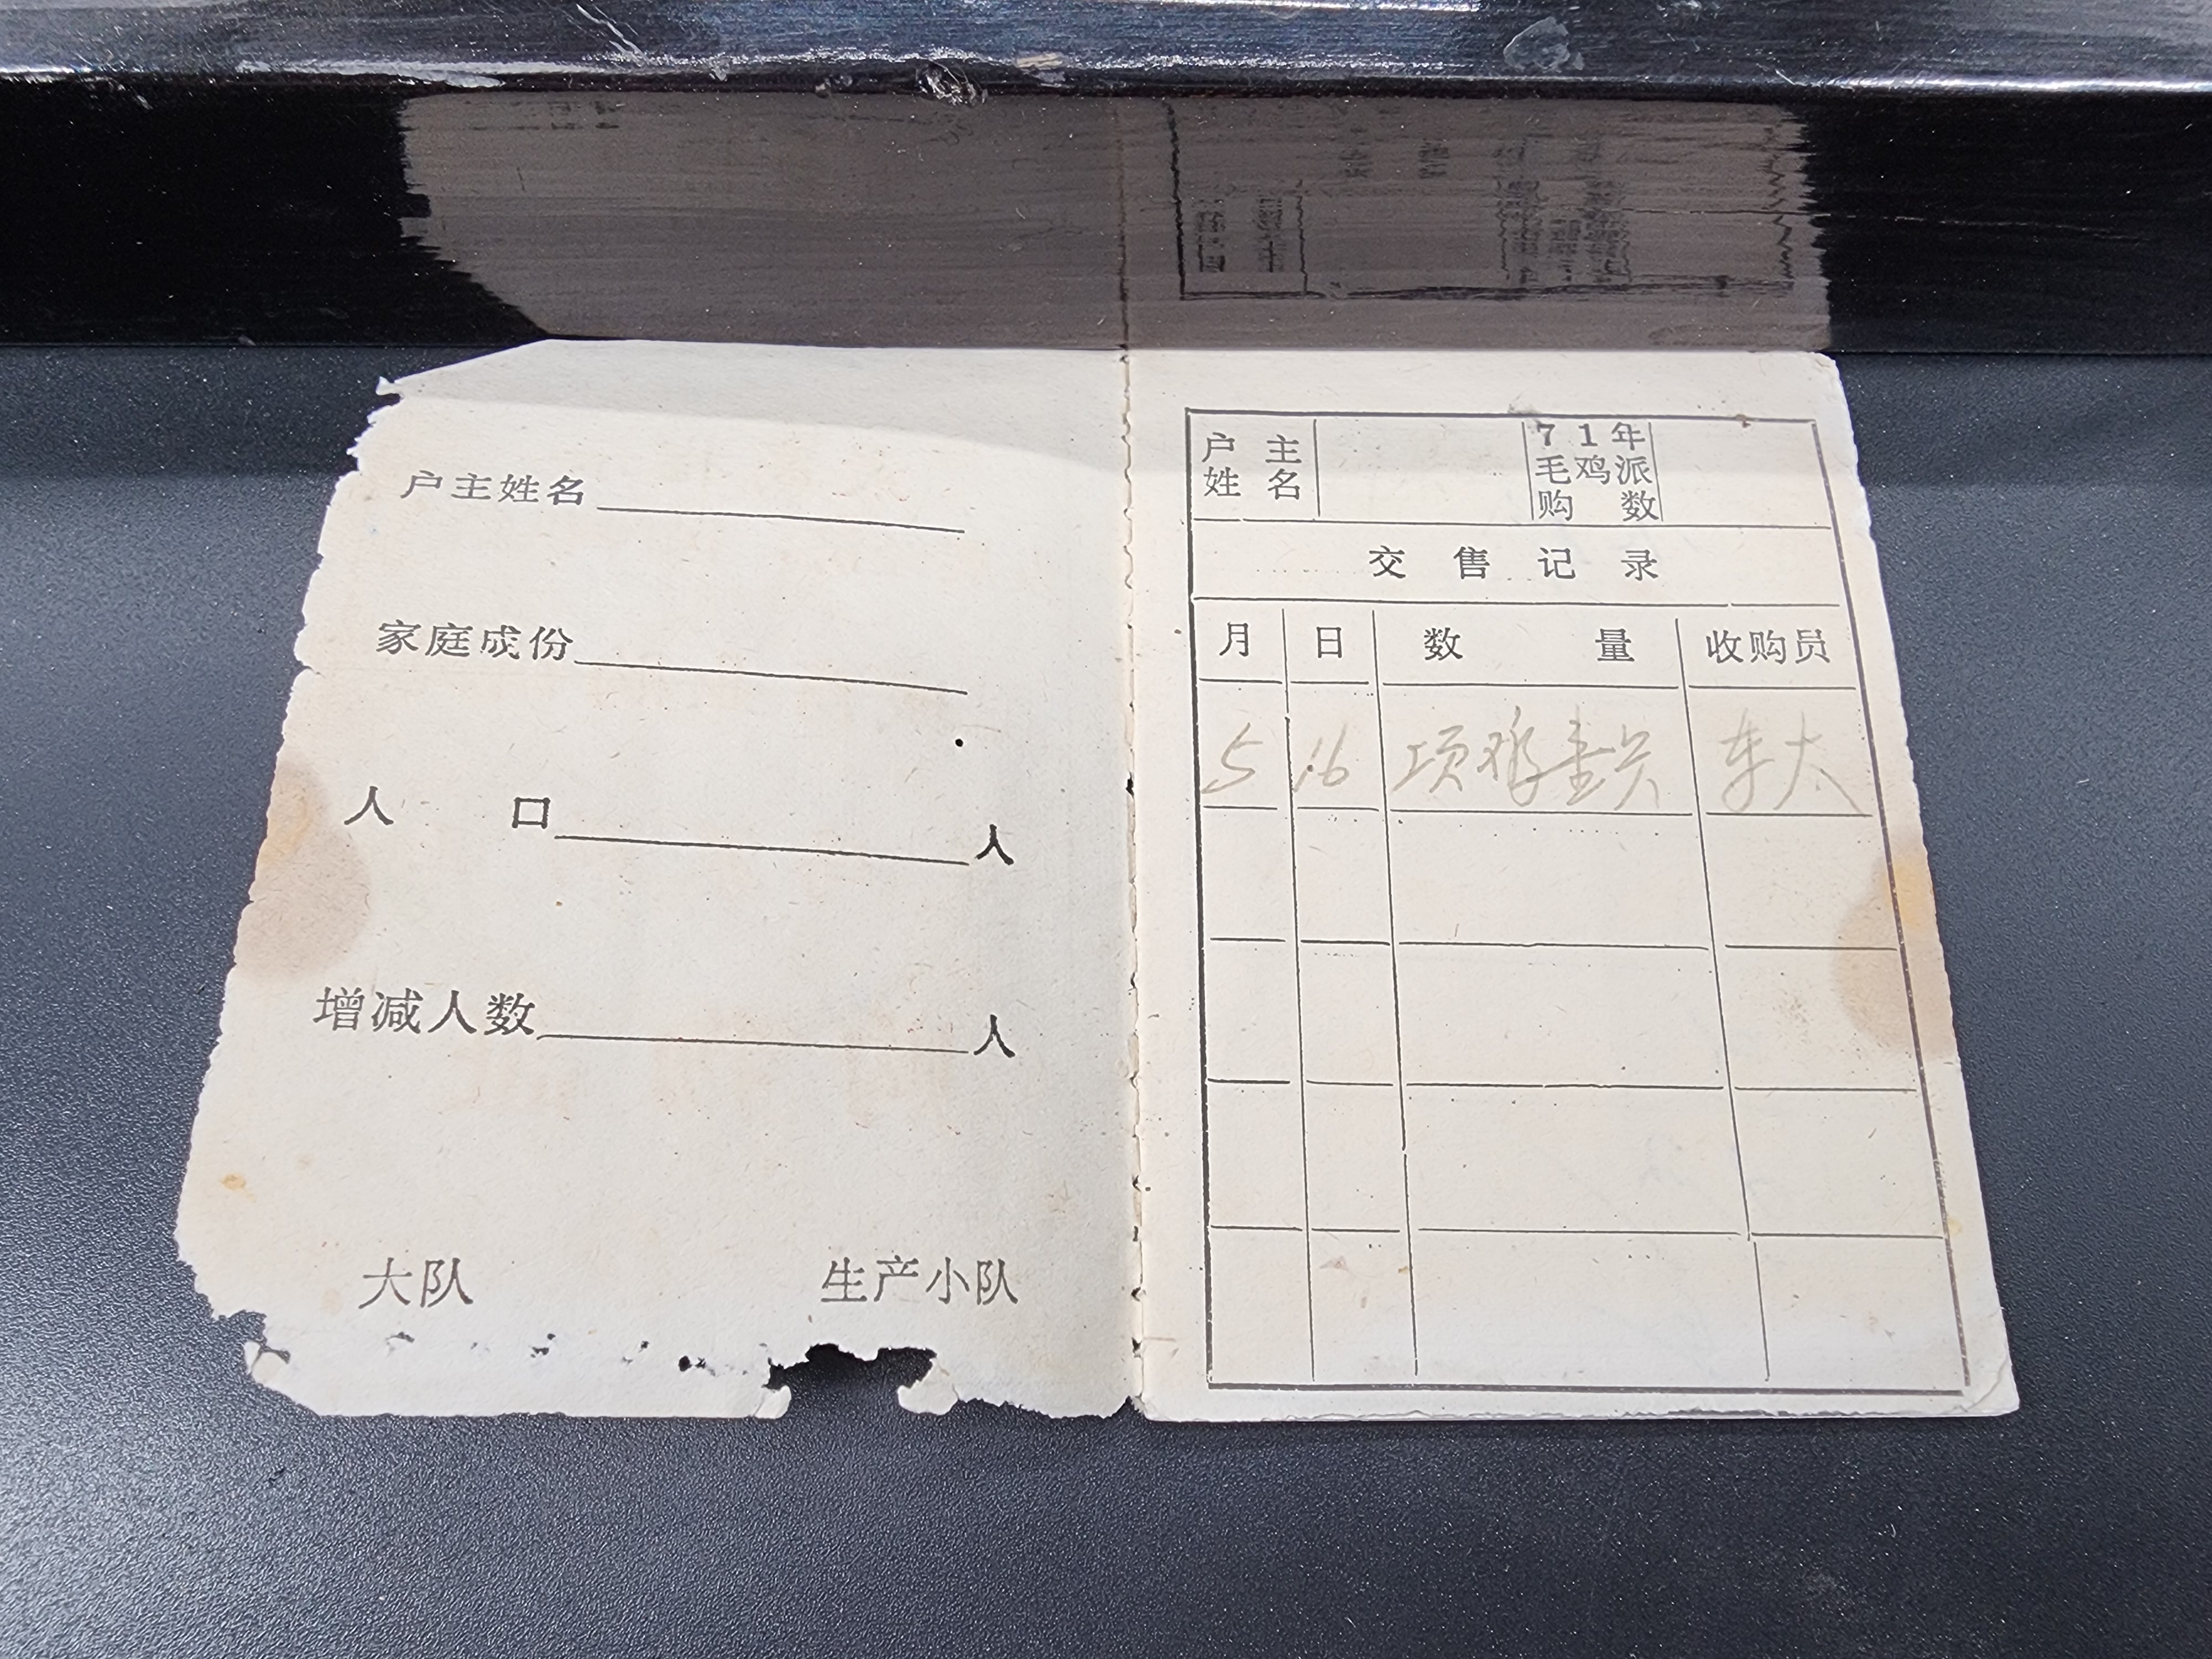 户主姓名
家庭成份
人 口 人
增减人数 人
大队 生产小队
户主姓名 71年毛鸡派购数
交售记录
月 日 数量 收购员
5 16 项鸡壹只